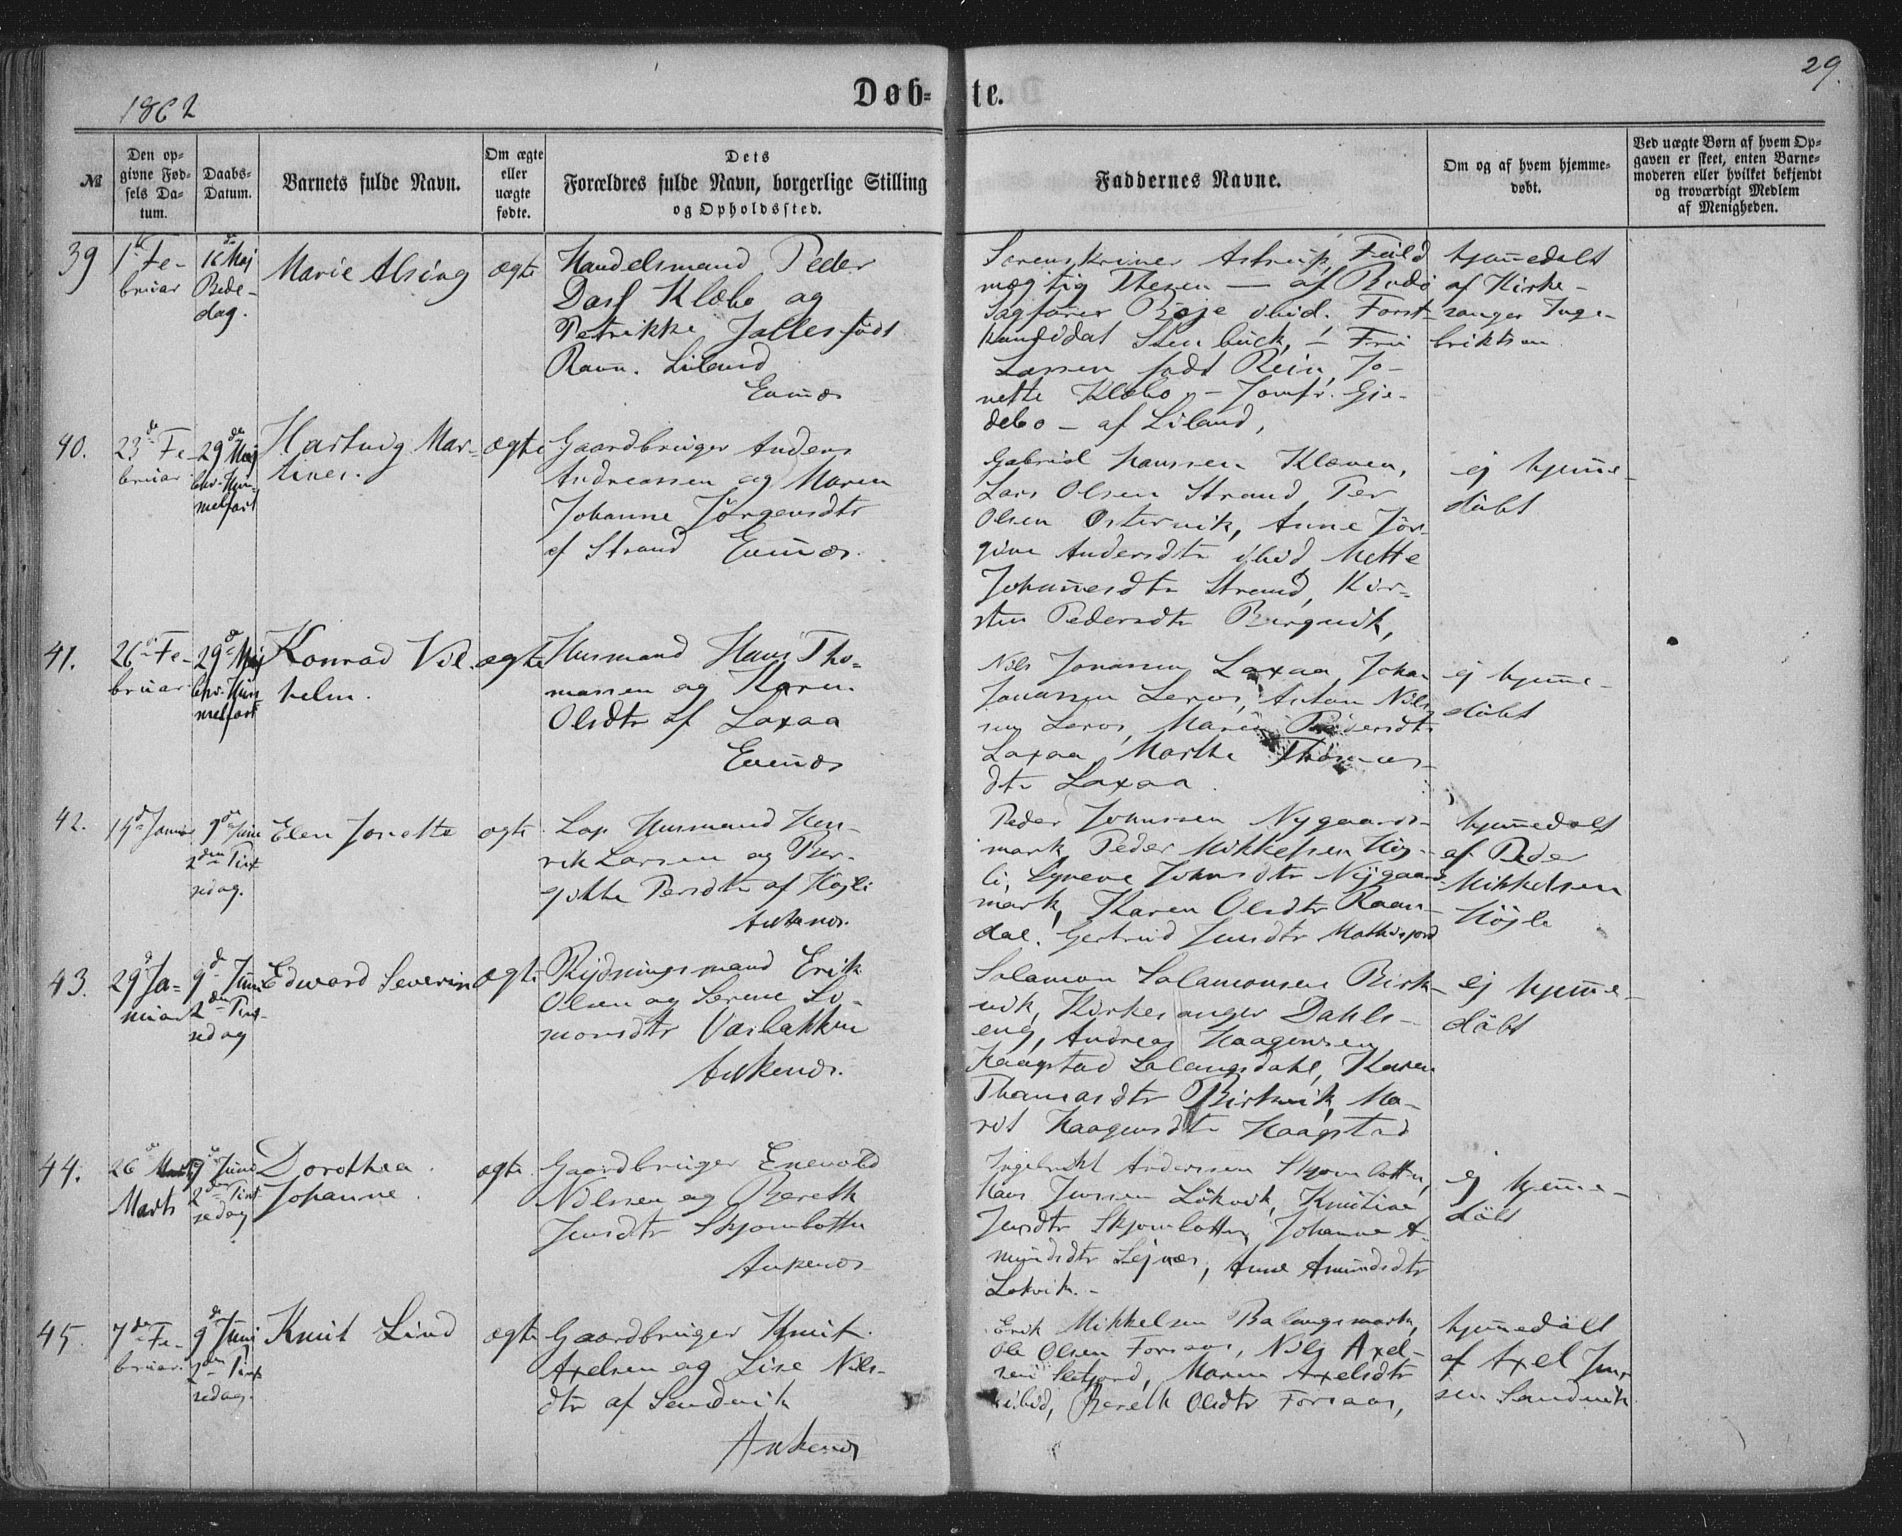 29.
1862
Døb-
te.
№
Den op-
givne Fød-
sels Da-
tum.
Daabs-
Datum.
Barnets fulde Navn.
Om ægte
eller
uægte
fødte.
Dets
Forældres fulde Navn, borgerlige Stilling
og Opholdssted.
Faddernes Navne.
Om og af hvem hjemme-
døbt.
Ved uægte Børn af hvem Op-
gaven er skeet, enten Barne-
moderen eller hvilket bekjendt
og troværdigt Medlem
af Menigheden.
39
1 Fe-
bruar
16 Maj
Bede-
dag.
Marie Alsing
ægte
Handelsmand Peder
Dass Klæbo og
Petrikke Jalles født
Ravn. Liland
Evenæs
Sorenskriver Astrup, Fuld
mægtig Thesen — af Bodö
Sagfører Böje ibid. Forst-
kandidat Stenbuck, — Fru
Lassen født Rein, Jo-
nette Klæbo, — Jomfr. Gje-
debo — af Liland,
hjemmedøbt
af Kirke-
sanger Inge-
briktsen
40.
23 de Fe-
bruar
29 de Maj
Chr. Him-
melfart
Hartvig Mar-
tines.
ægte
Gaardbruger Anders
Andreassen og Maren
Johanne Jörgensdtr
af Strand Evenæs.
Gabriel Hanssen Kleven,
Lars Olsen Strand, Per
Olsen Østervik, Anne Jör-
gine Andersdtr ibid, Mette
Johannesdtr Strand, Kir-
sten Pedersdtr Bergvik,
ej hjemme-
döbt
41.
26 Fe-
bruar
29 de Maj
Chr. Him
melfart
Konrad Vil-
helm.
ægte
Husmand Hans Tho-
massen og Karen
Olsdtr af Laxaa
Evenæs
Nils Jonassen Laxaa, Johan
Jonassen Leros, Anton Nils
sen Leros, Maren Pedersdtr
Laxaa, Marthe Thomas-
dtr Laxaa.
ej hjemme-
döbt
42.
14 d Januar
9 d Juni
2 den Pint
sedag.
Elen Jonette
ægte
Lap Husmand Hen-
rik Larsen og Bir-
gitte Persdtr af Højli
Ankenes.
Peder Johnsen Nygaards-
mark, Peder Mikkelsen Höj-
li, Synneve Johnsdtr Nygaards
mark, Karen Olsdtr Raan-
dal. Gertrud Jensdtr Mathisjord
hjemmedøbt
af Peder
Mikkelsen
Höjli
43.
29 d Ja-
nuar
9 d Juni
2 den Pint-
sedag
Edvard Severin
ægte
Rydningsmand Erik
Olsen og Serine Si-
monsdtr Vasbakken
Ankenes.
Salamon Salamonsen Birk-
vik, Kirkesanger Dahls-
eng, Andreas Haagensen
Haagstad Salangsdahl, Karen
Thomasdtr Birkvik, Ma-
rit Haagensdtr Haagstad
ej hjemme-
döbt
44.
26
Marts
9 Juni
2 den Pint-
sedag
Dorothea
Johanne.
ægte
Gaardbruger Enevold
Nilssen og Bereth
Jensdtr Skjombotten
Ankenes
Ingebrikt Anderssen Skjombotten,
Hans Jenssen Lökvik, Knutine
Jensdtr Skjombotten, Johanne A-
mundsdtr Lejnæs, Anne Amundsdtr
Lökvik. —
ej hjemme-
döbt
45.
7 de Fe-
bruar.
9 d Juni
2 den Pint
sedag.
Knut Lind
ægte
Gaardbruger Knut
Axelsen og Lise Nils-
dtr af Sandvik
Ankenes
Erik Mikkelsen Balangsmark,
Ole Olsen Forsaa, Nils Axel-
sen Sletjord, Maren Axelsdtr
ibid, Bereth Olsdtr Forsaa,
hjemmedöbt
af Axel Jen-
sen Sandvik